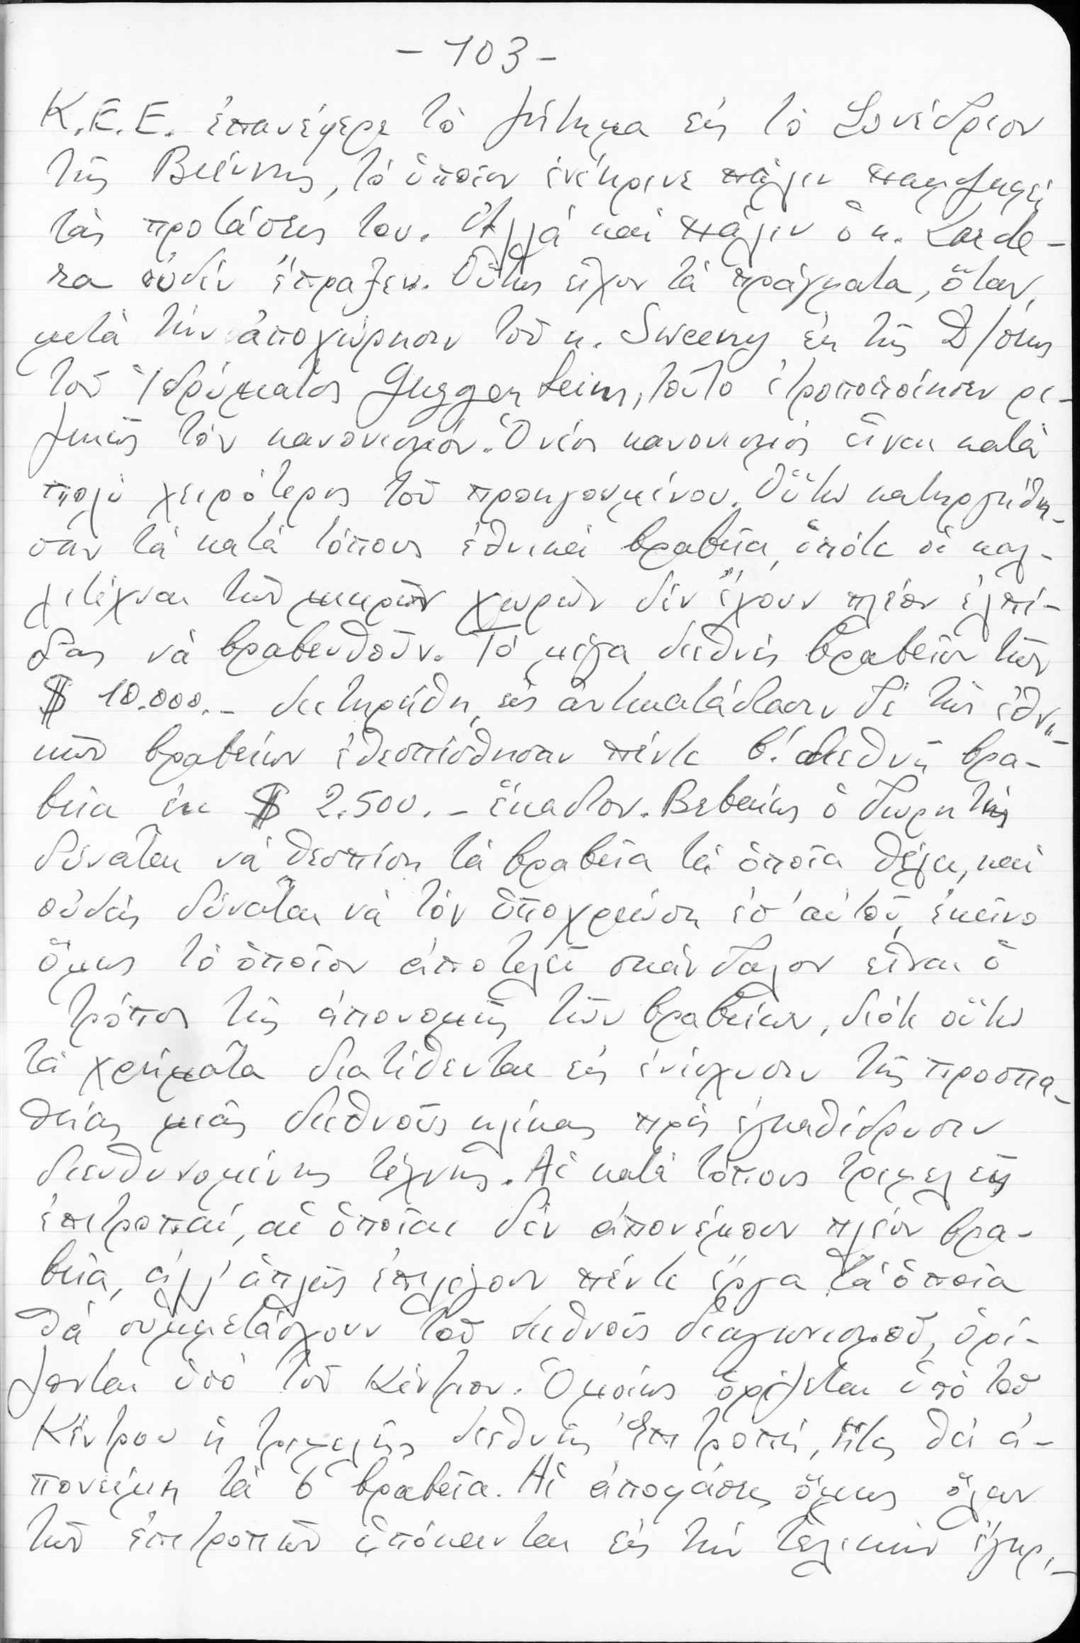 - 103 -
Κ.Ε.Ε. ἐπανέφερε τὸ ζήτημα εἰς τὸ Συνέδριον
τῆς Βιέννης, τὸ ὁποῖον ἐνέκρινε πάλιν παμψηφεὶ
τὰς προτάσεις του. Ἀλλὰ καὶ πάλιν ὁ κ. Larde-
ra οὐδὲν ἔπραξεν. Οὕτως εἶχον τὰ πράγματα, ὅταν,
μετὰ τὴν ἀποχώρησιν τοῦ κ. Sweeny ἐκ τῆς Δ/σεως
τοῦ Ἱδρύματος Guggenheim, τοῦτο ἐτροποποίησεν ρι-
ζικῶς τὸν κανονισμόν. Ὁ νέος κανονισμὸς εἶναι κατὰ
πολὺ χειρότερος τοῦ προηγουμένου. Οὕτω κατηργήθη-
σαν τὰ κατὰ τόπους ἐθνικὰ βραβεῖα, ὁπότε οἱ καλ-
λιτέχναι τῶν μικρῶν χωρῶν δὲν ἔχουν πλέον ἐλπί-
δας νὰ βραβευθοῦν. Τὸ μέγα διεθνὲς βραβεῖον τῶν
$ 10.000.- διετηρήθη, εἰς ἀντικατάστασιν δὲ τῶν ἐθνι-
κῶν βραβείων ἐθεσπίσθησαν πέντε β΄. διεθνῆ βρα-
βεῖα ἐκ $ 2.500.- ἕκαστον. Βεβαίως ὁ δωρητὴς
δύναται νὰ θεσπίσῃ τὰ βραβεῖα τὰ ὁποῖα θέλει, καὶ
οὐδεὶς δύναται νὰ τὸν ὑποχρεώσῃ ἐπ' αὐτοῦ, ἐκεῖνο
ὅμως τὸ ὁποῖον ἀποτελεῖ σκάνδαλον εἶναι ὁ
τρόπος τῆς ἀπονομῆς τῶν βραβείων, διότι οὕτω
τὰ χρήματα διατίθενται εἰς ἐνίσχυσιν τῆς προσπα-
θείας μιᾶς διεθνοῦς κλίκας πρὸς ἐγκαθίδρυσιν
διευθυνομένης τέχνης. Αἱ κατὰ τόπους τριμελεῖς
ἐπιτροπαί, αἱ ὁποῖαι δὲν ἀπονέμουν πλέον βρα-
βεῖα, ἀλλ' ἁπλῶς ἐπιλέγουν πέντε ἔργα τὰ ὁποῖα
θὰ συμμετάσχουν τοῦ διεθνοῦς διαγωνισμοῦ, ὁρί-
ζονται ὑπὸ τοῦ Κέντρου. Ὁμοίως ὁρίζεται ὑπὸ τοῦ
Κέντρου ἡ τριμελὴς διεθνὴς Ἐπιτροπή, ἥτις θὰ ἀ-
πονείμῃ τὰ 6 βραβεῖα. Αἱ ἀποφάσεις ὅμως ὅλων
τῶν ἐπιτροπῶν ὑπόκεινται εἰς τὴν τελικὴν ἔγκρι-